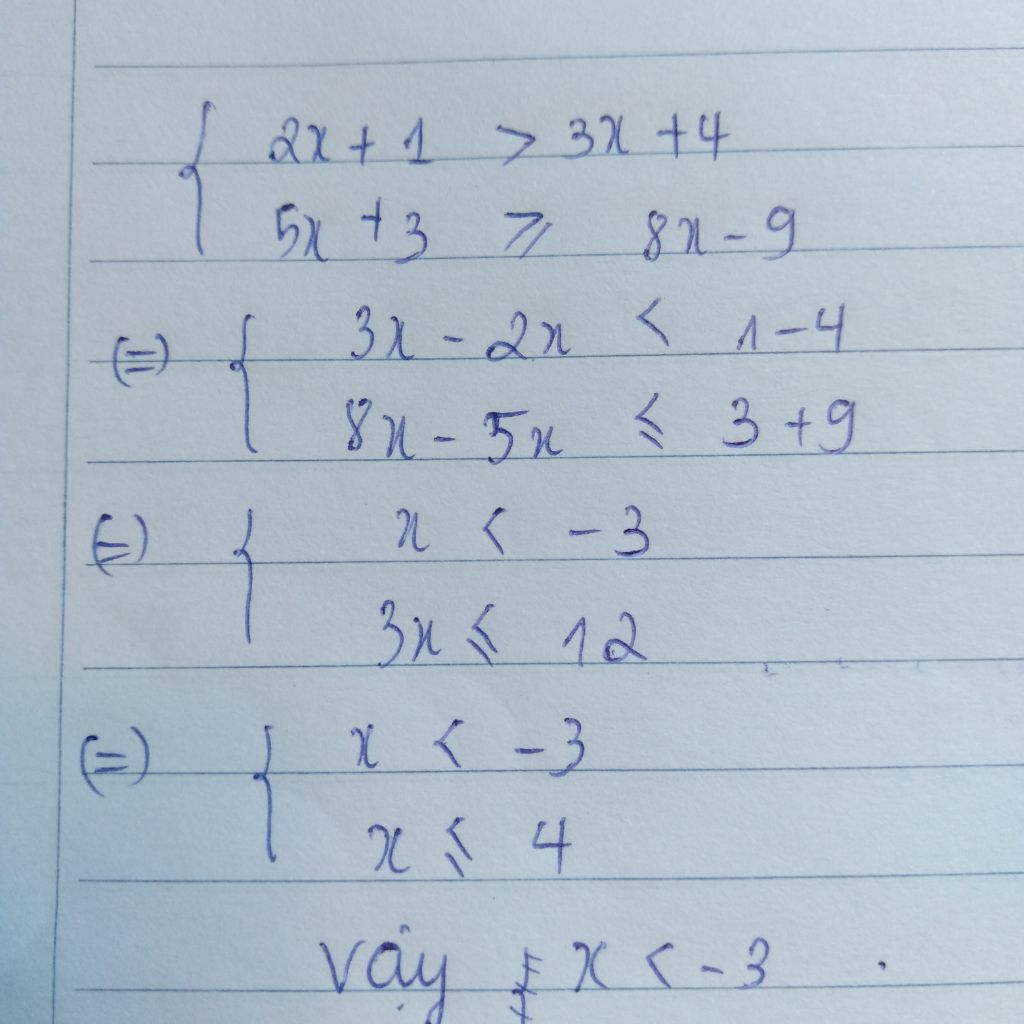 { 2x + 1 > 3x + 4
5x + 3 ⩾ 8x - 9
(=) { 3x - 2x < 1 - 4
8x - 5x ⩽ 3 + 9
(=) { x < -3
3x ⩽ 12
(=) { x < -3
x ⩽ 4
Vậy x < -3 .